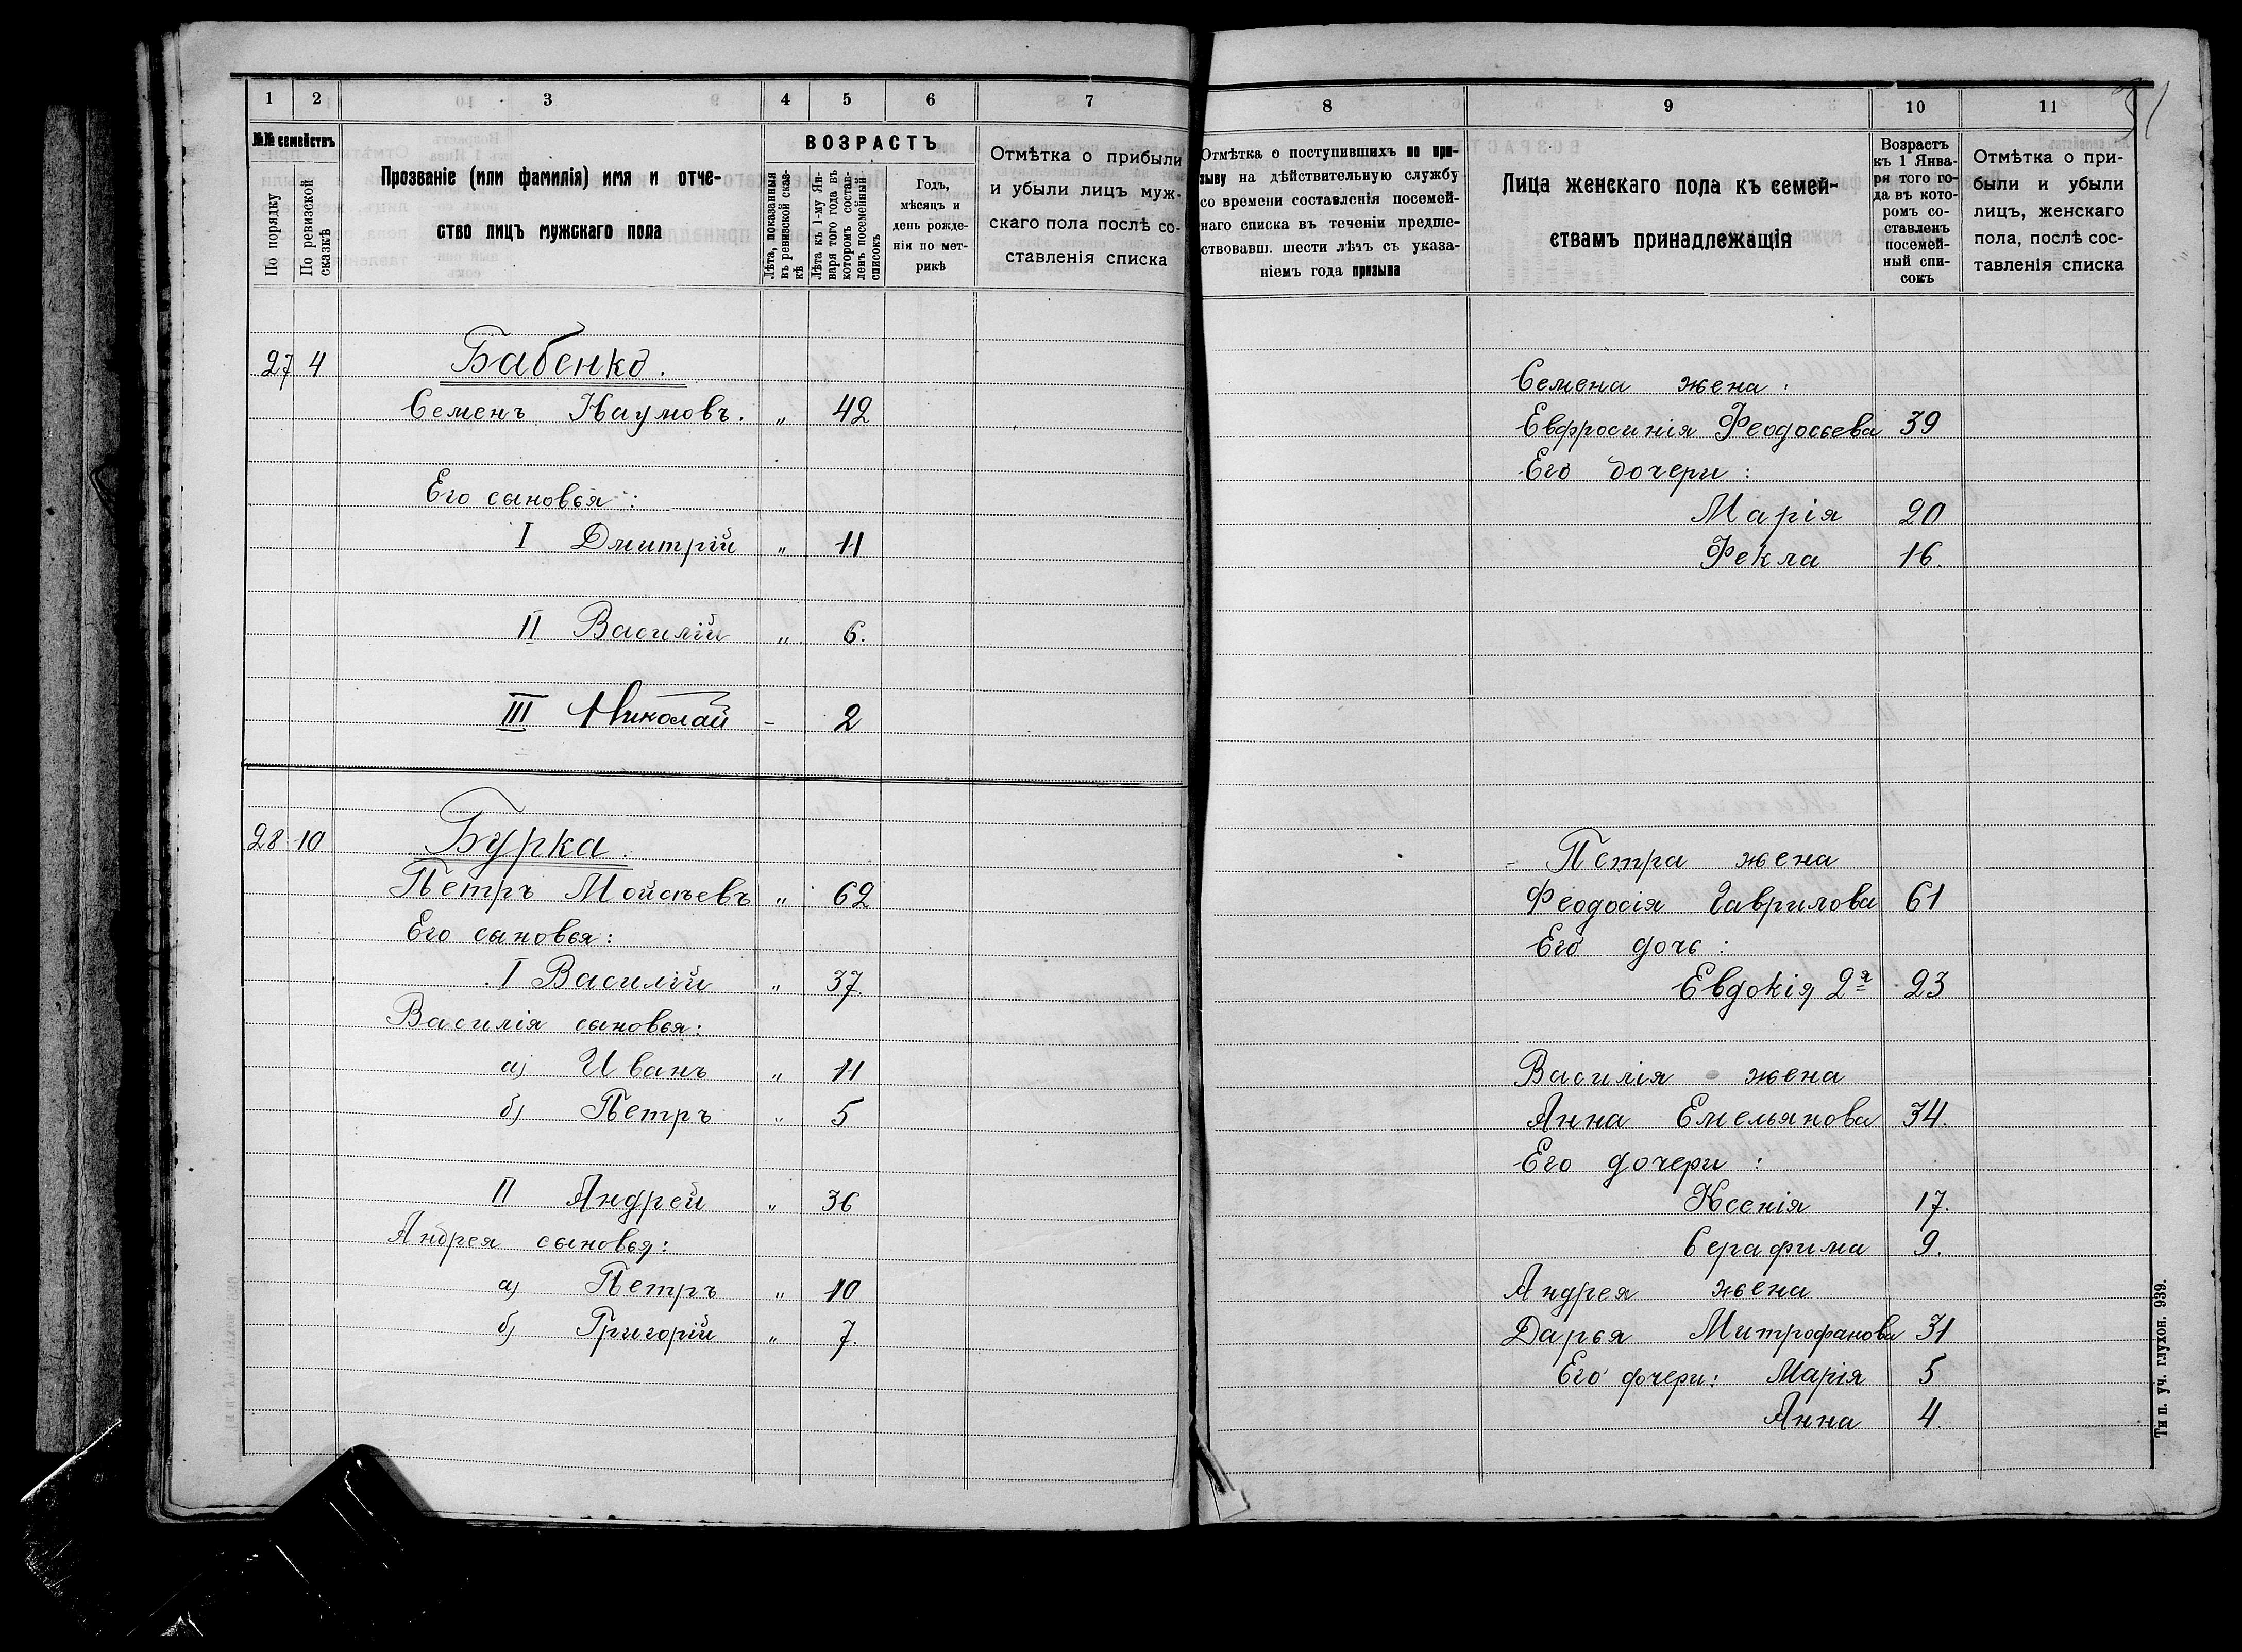 31
1 2 3 4 5 6 7
№№ семействъ
По порядку
По ревизской сказкѣ
Прозваніе (или фамилія) имя и отче-
ство лицъ мужскаго пола
ВОЗРАСТЪ
Лѣта, показанныя
въ ревизской сказ-
кѣ
Лѣта къ 1-му Ян-
варя того года въ
которомъ состав-
ленъ посемейный
списокъ
Годъ,
мѣсяцъ и
день рожде-
нія по мет-
рикѣ
Отмѣтка о прибыли
и убыли лицъ муж-
скаго пола послѣ со-
ставленія списка
27 4 Бабенко.
Семенъ Наумовъ. „ 42
Его сыновья:
I Дмитрій „ 11
II Василій „ 6.
III Николай - 2
28 10 Бурка.
Петръ Мойсѣевъ „ 62
Его сыновья:
I Василій „ 37.
Василія сыновья:
а) Иванъ „ 11
б) Петръ „ 5
II Андрей „ 36
Андрея сыновья:
а) Петръ „ 10
б) Григорій „ 7.
8 9 10 11
Отмѣтка о поступившихъ по при-
зыву на дѣйствительную службу
со времени составленія посемей-
наго списка въ теченіи предше-
ствовавш. шести лѣтъ съ указа-
ніемъ года призыва
Лица женскаго пола къ семей-
ствамъ принадлежащія
Возрастъ
къ 1 Янва-
ря того го-
да въ кото-
ромъ со-
ставленъ
посемей-
ный спи-
сокъ
Отмѣтка о при-
были и убыли
лицъ, женскаго
пола, послѣ сос-
тавленія списка
Семена жена:
Евфросинія Феодосьева 39
Его дочери:
Марія 20
Фекла 16.
Петра жена
Феодосія Гаврилова 61
Его дочь:
Евдокія 2я 23
Василія жена
Анна Емельянова 34.
Его дочери:
Ксенія 17.
Серафима 9.
Андрея жена
Дарья Митрофанова 31
Его дочери: Марія 5
Анна 4.
Тип. уч. глухон. 939.